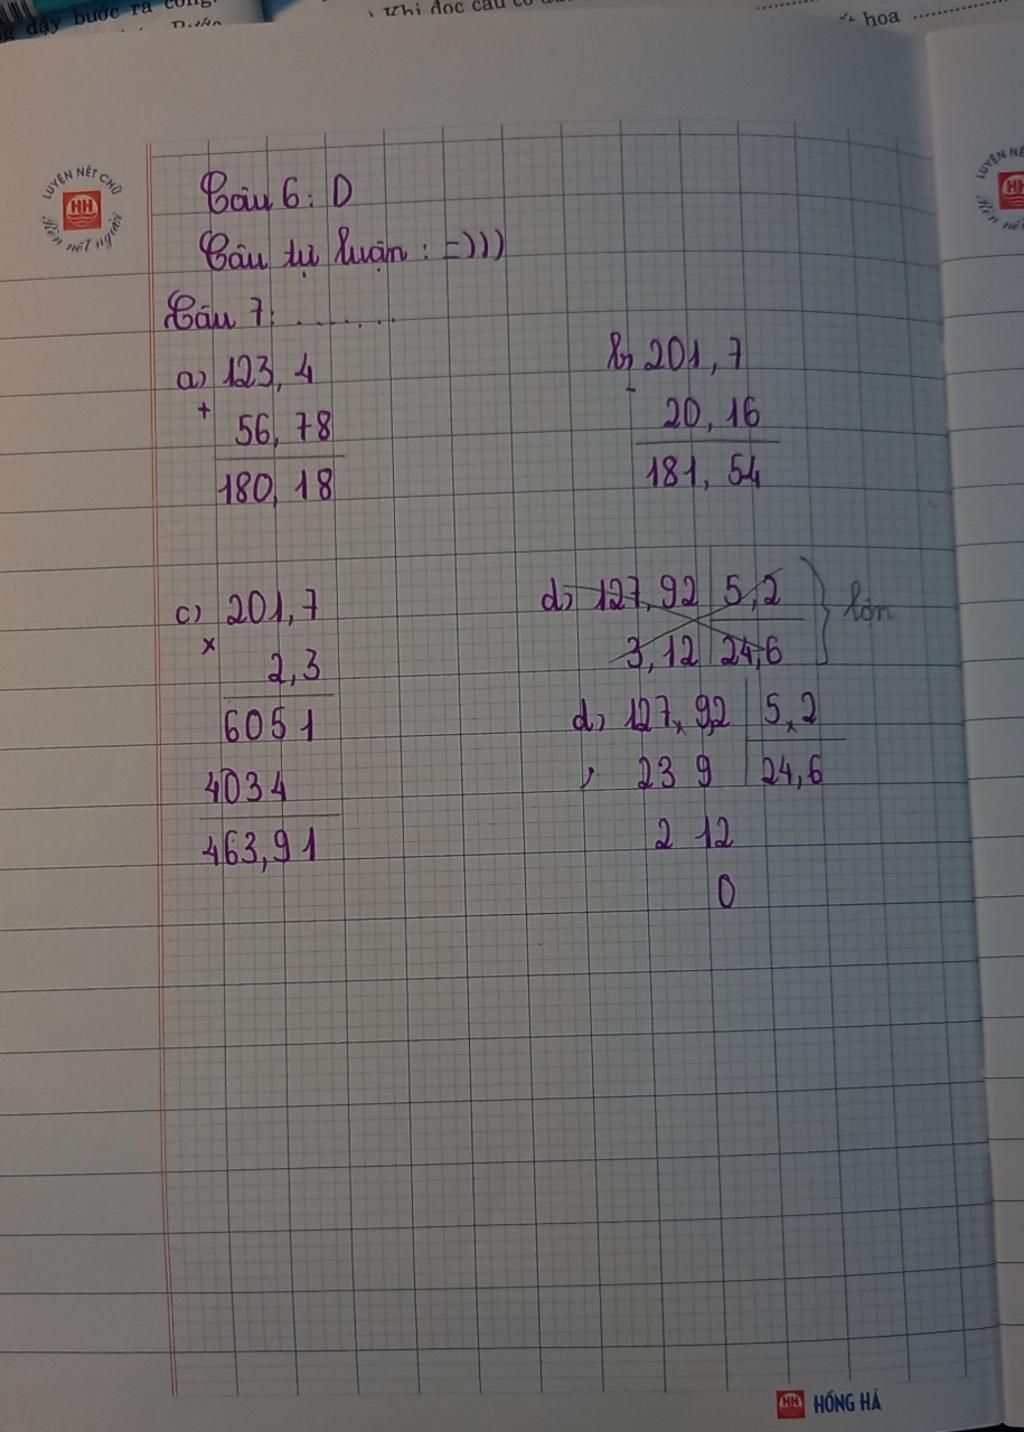 dậy bước ra
Khi đọc câu
hoa
LUYỆN NÉT CHỮ
HH
Rèn nết người
Câu 6: D
Câu tự luận : =)))
Câu 7: .......
a) 123,4
+
56,78
180,18
b) 201,7
-
20,16
181,54
c) 201,7
x
2,3
6051
4034
463,91
d) 127,92 5,2
3,12 24,6
lộn
d) 127,92 5,2
23 9 24,6
2 12
0
HH HỒNG HÀ